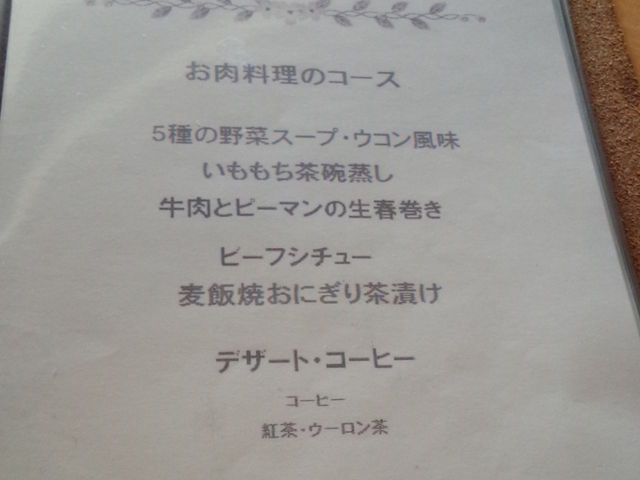 お肉料理のコース
5種の野菜スープ・ウコン風味
いももち茶碗蒸し
牛肉とピーマンの生春巻き
ビーフシチュー
麦飯焼おにぎり茶漬け
デザート・コーヒー
コーヒー
紅茶・ウーロン茶